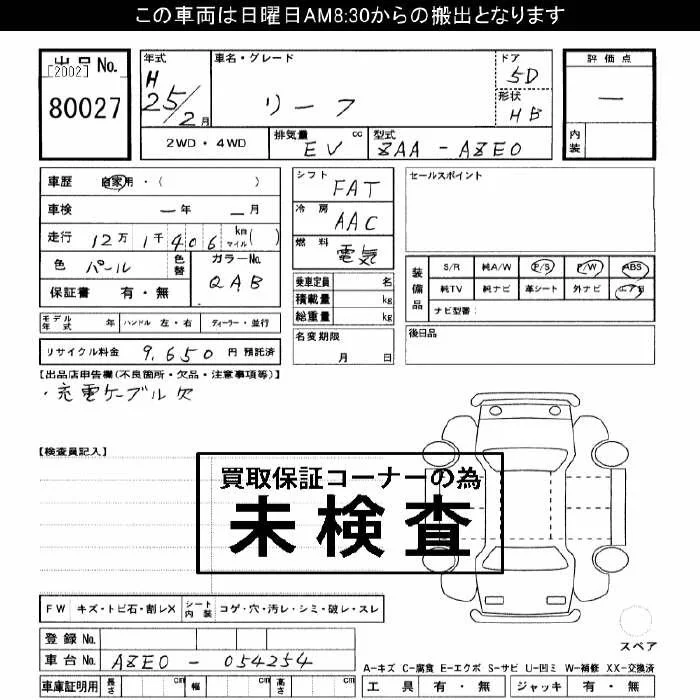 この車両は日曜日AM8:30からの搬出となります
出品 No.
[2002]
80027
年式 H 25/2月
車名・グレード リーフ
ドア 5D
形状 HB
2WD・4WD
排気量 cc EV
型式 ZAA-AZE0
評価点 —
内装
車歴 自家用・( )
車検 —年 —月
走行 12万 1千 406 km マイル( )
色 パール
色替
カラーNo. QAB
保証書 有・無
シフト FAT
冷房 AAC
燃料 電気
乗車定員 名
積載量 kg
総重量 kg
名変期限 月 日
セールスポイント
装備品
S/R 純A/W P/S P/W ABS
純TV 純ナビ 革シート 外ナビ エアB
ナビ型番:
後日品
モデル年式 年 ハンドル 左・右 ディーラー・並行
リサイクル料金 9,650 円 預託済
【出品店申告欄(不良箇所・欠品・注意事項等)】
・充電ケーブル欠
【検査員記入】
買取保証コーナーの為
未検査
FW キズ・トビ石・割レX シート内装 コゲ・穴・汚レ・シミ・破レ・スレ
登録 No.
車台 No. AZE0-054254
車庫証明用 長さ cm 幅 cm 高さ cm
スペア
A-キズ C-腐食 E-エクボ S-サビ U-凹ミ W-補修 XX-交換済
工具 有・無 ジャッキ 有・無